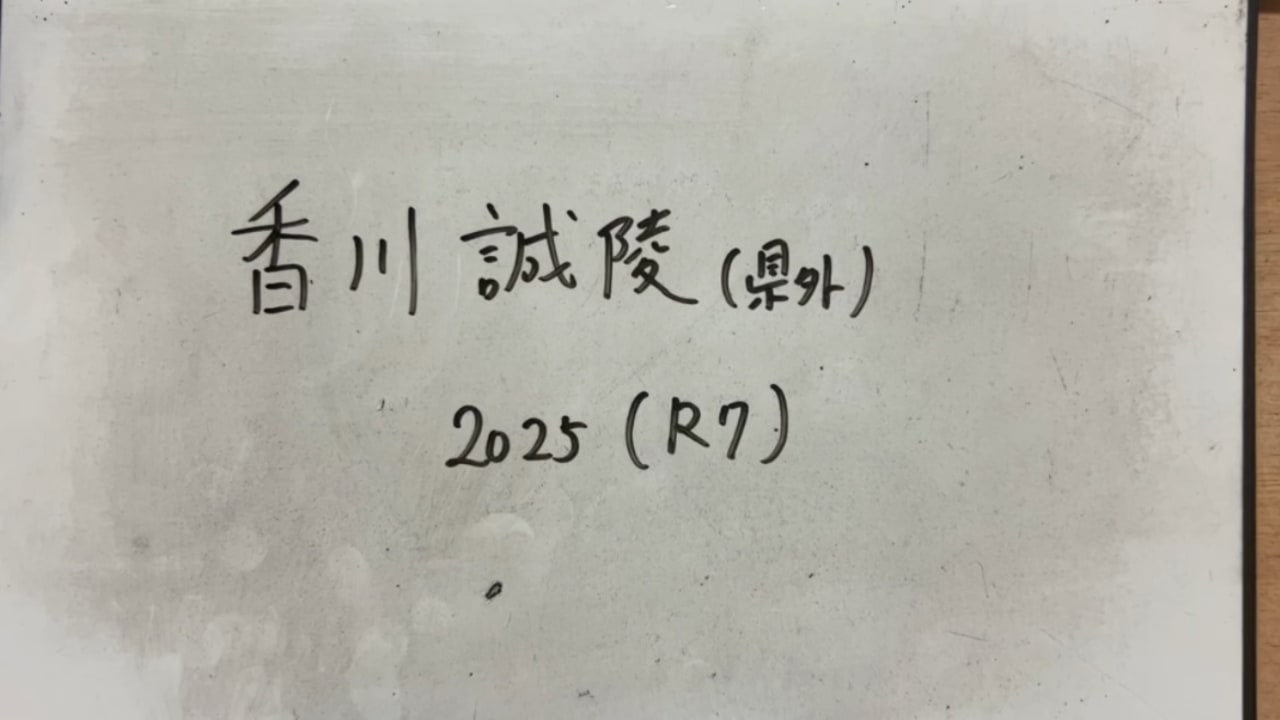 香川 誠陵 (県外)
2025 (R7)